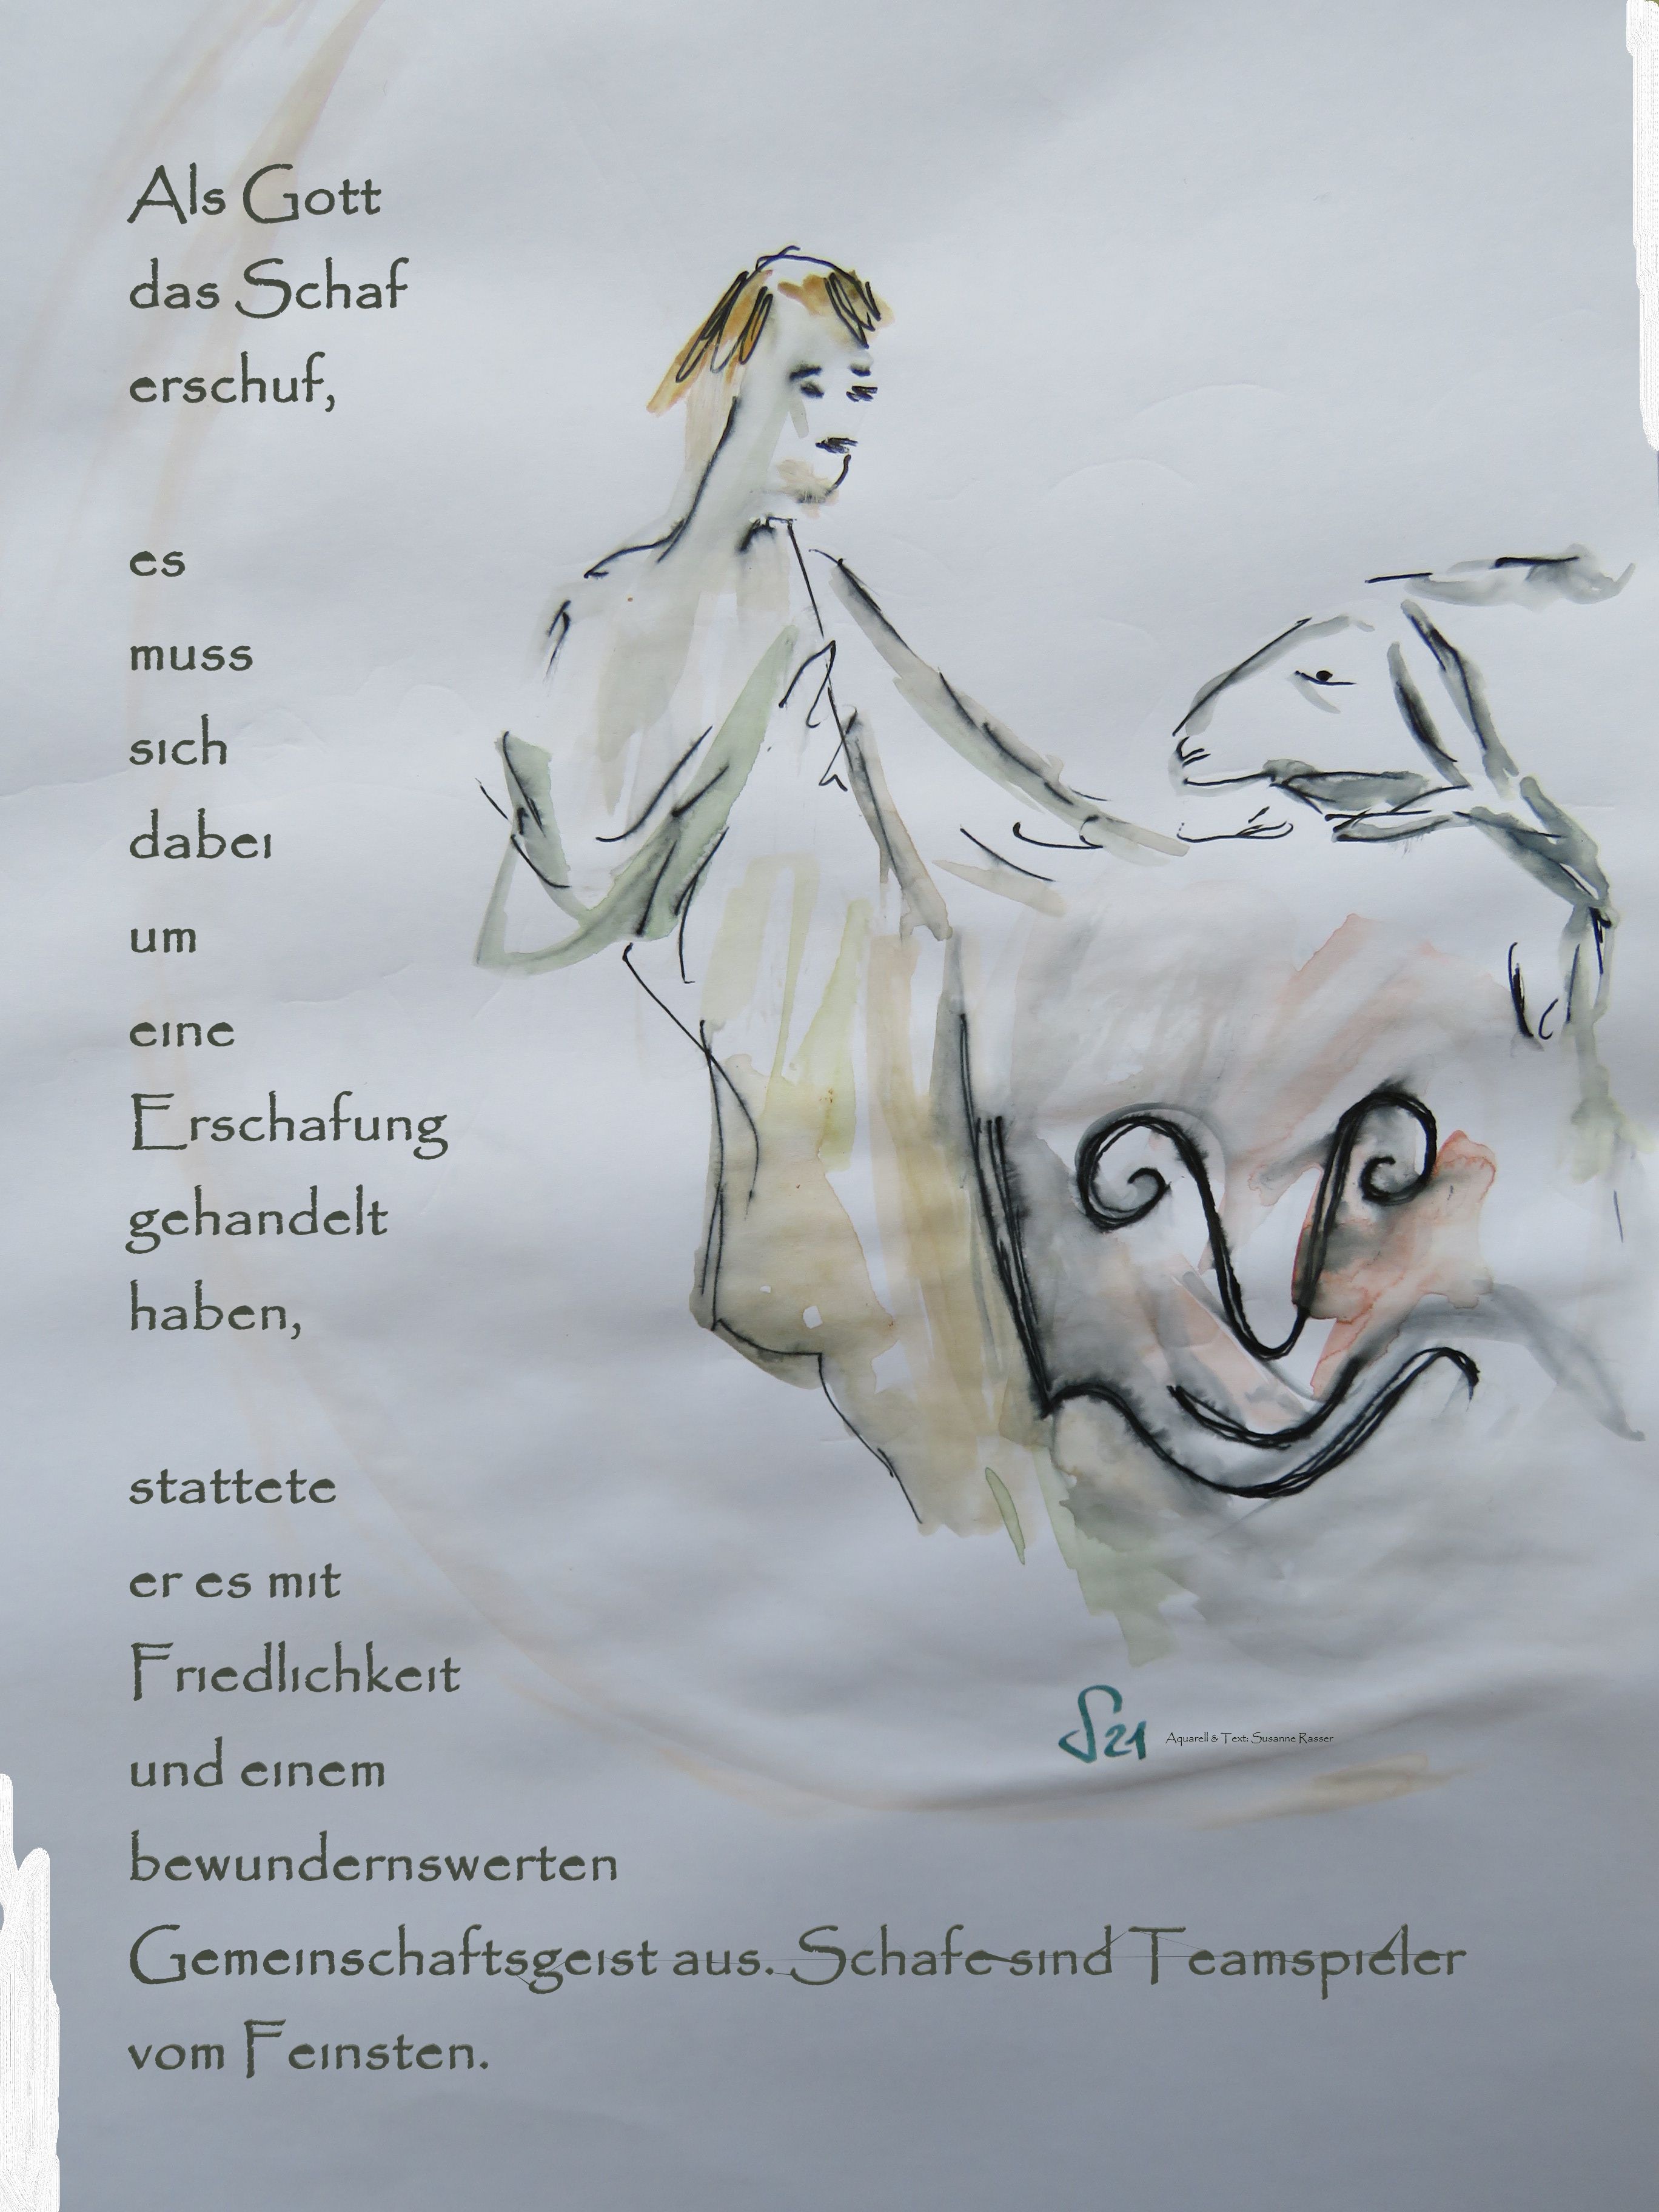 Als Gott
das Schaf
erschuf,
es
muss
sich
dabei
um
eine
Erschafung
gehandelt
haben,
stattete
er es mit
Friedlichkeit
und einem
bewundernswerten
Gemeinschaftsgeist aus. Schafe sind Teamspieler
vom Feinsten.
S21 Aquarell & Text: Susanne Rasser